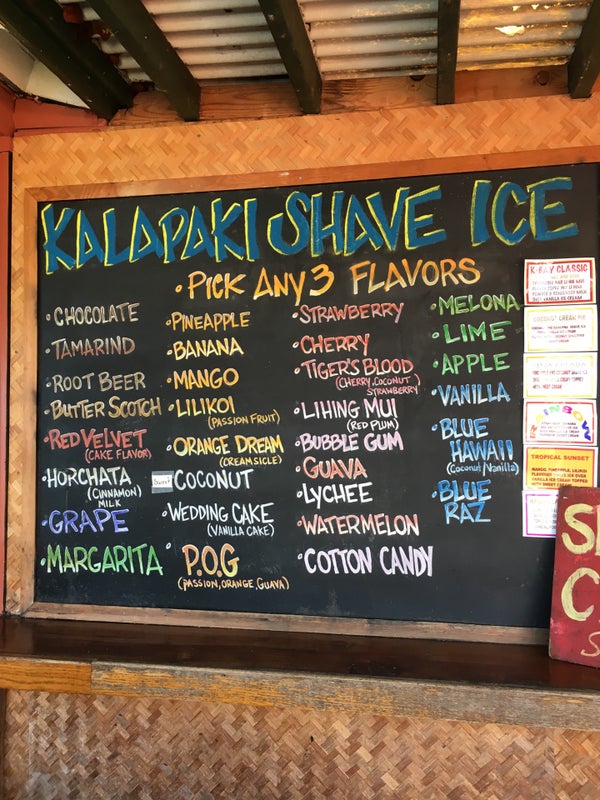 KALAPAKI SHAVE ICE
• PICK ANY 3 FLAVORS
• CHOCOLATE
• TAMARIND
• ROOT BEER
• BUTTER SCOTCH
• RED VELVET
(CAKE FLAVOR)
• HORCHATA
(CINNAMON)
MILK
• GRAPE
• MARGARITA
• PINEAPPLE
• BANANA
• MANGO
• LILIKOI
(PASSION FRUIT)
• ORANGE DREAM
(CREAMSICLE)
COCONUT
• WEDDING CAKE
(VANILLA CAKE)
• P.O.G
(PASSION, ORANGE, GUAVA)
• STRAWBERRY
• CHERRY
• TIGER'S BLOOD
(CHERRY, COCONUT
STRAWBERRY)
• LIHING MUI
(RED PLUM)
• BUBBLE GUM
• GUAVA
• LYCHEE
• WATERMELON
• COTTON CANDY
• MELONA
• LIME
• APPLE
• VANILLA
• BLUE
HAWAII
(Coconut/Vanilla)
• BLUE
RAZ
K-BAY CLASSIC
COCONUT CREAM PIE
RAINBOW
TROPICAL SUNSET
MANGO, PINEAPPLE, LILIKOI
VANILLA ICE CREAM TOPPED
WITH SWEET CREAM